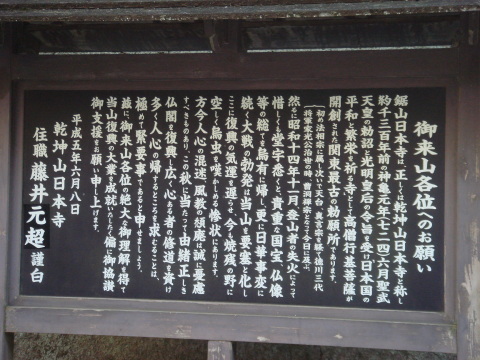 御来山各位へのお願い
鋸山日本寺は、正しくは乾坤山日本寺と称し
約千三百年前の神亀元年(七二四)六月聖武
天皇の勅詔と光明皇后の令旨を受け日本国の
平和と繁栄を祈る寺として高僧行基菩薩が
開創された関東最古の勅願所であります。
初め法相宗に属し次いで天台、真言宗を経て徳川三代
将軍家光公治世の時、曹洞禅宗となって今日に及ぶ。
然るに昭和十四年十一月登山者の失火によって
惜しくも堂宇悉くと貴重な国宝、仏像
等の総てを烏有に帰し、更に日華事変に
続く大戦の勃発は当山を要塞と化し
ここに復興の気運を逸らせ、今も焼残の野に
空しく鳥虫を啼かしめる惨状にあります。
方今人心の混迷、風教の頽廃は誠に憂慮
すべきものあり、この秋に当たって由緒正しき
仏閣を復興し広く心ある者の修道を資け
多く人心の帰するところを求むることは、
極めて緊要事であると申せましょう。
茲に、御来山各位の絶大な御理解を得て
当山復興の大業成就いたしたく偏に御協讃
御支援をお願い申し上げます。
平成五年六月八日
乾坤山日本寺
住職 藤井元超 謹白